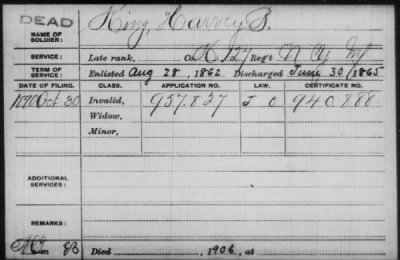 DEAD
NAME OF SOLDIER: King, Harvey S.
SERVICE: Late rank, K 127 Reg't N Y Inf
TERM OF SERVICE: Enlisted Aug 28, 1862 Discharged June 30, 1865
DATE OF FILING. CLASS. APPLICATION NO. LAW. CERTIFICATE NO.
1890 Oct 30 Invalid, 957.827 J O 940.888
Widow,
Minor,
ADDITIONAL SERVICES:
REMARKS:
Died 1906, at